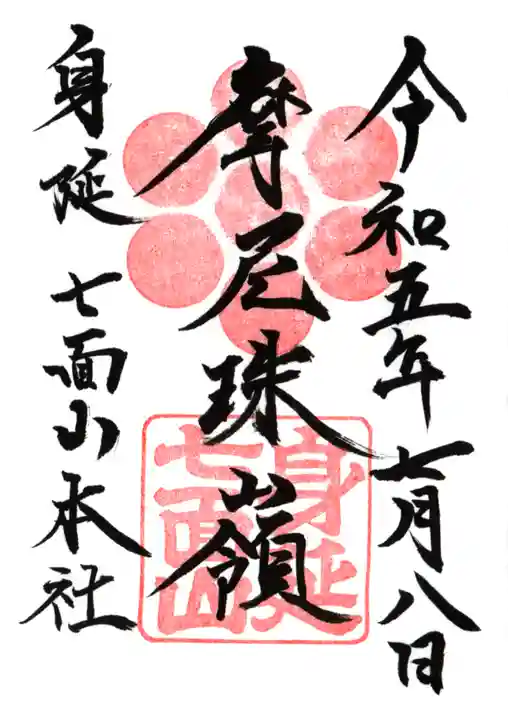 令和五年七月八日
摩尼珠嶺
身延七面山
身延 七面山本社